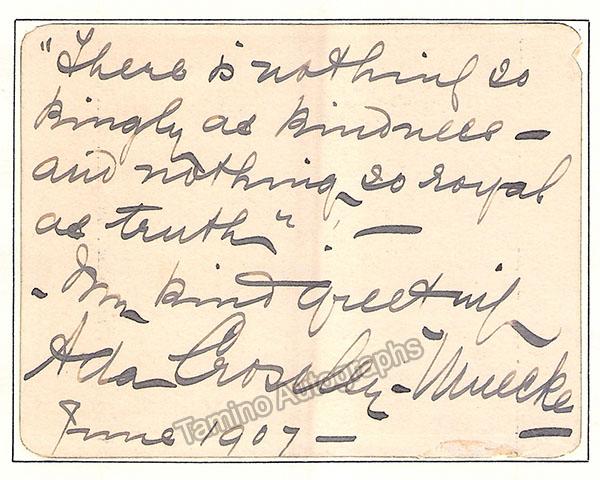 "There is nothing so
kingly as kindness —
and nothing so royal
as truth"! —
kind greeting
Ada Crossley-Muecke
June 1907 —
Tamino Autographs